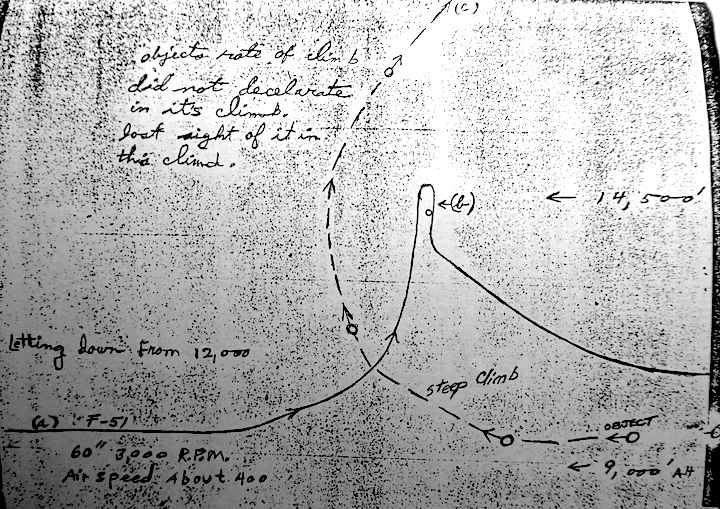 (c)
objects rate of climb
did not decelarate
in it's climb.
lost sight of it in
this climb.
←(b)
← 14,500'
Letting down From 12,000
steep climb
(a) F-51
OBJECT
60" 3,000 R.P.M.
Air speed About 400
← 9,000' Alt